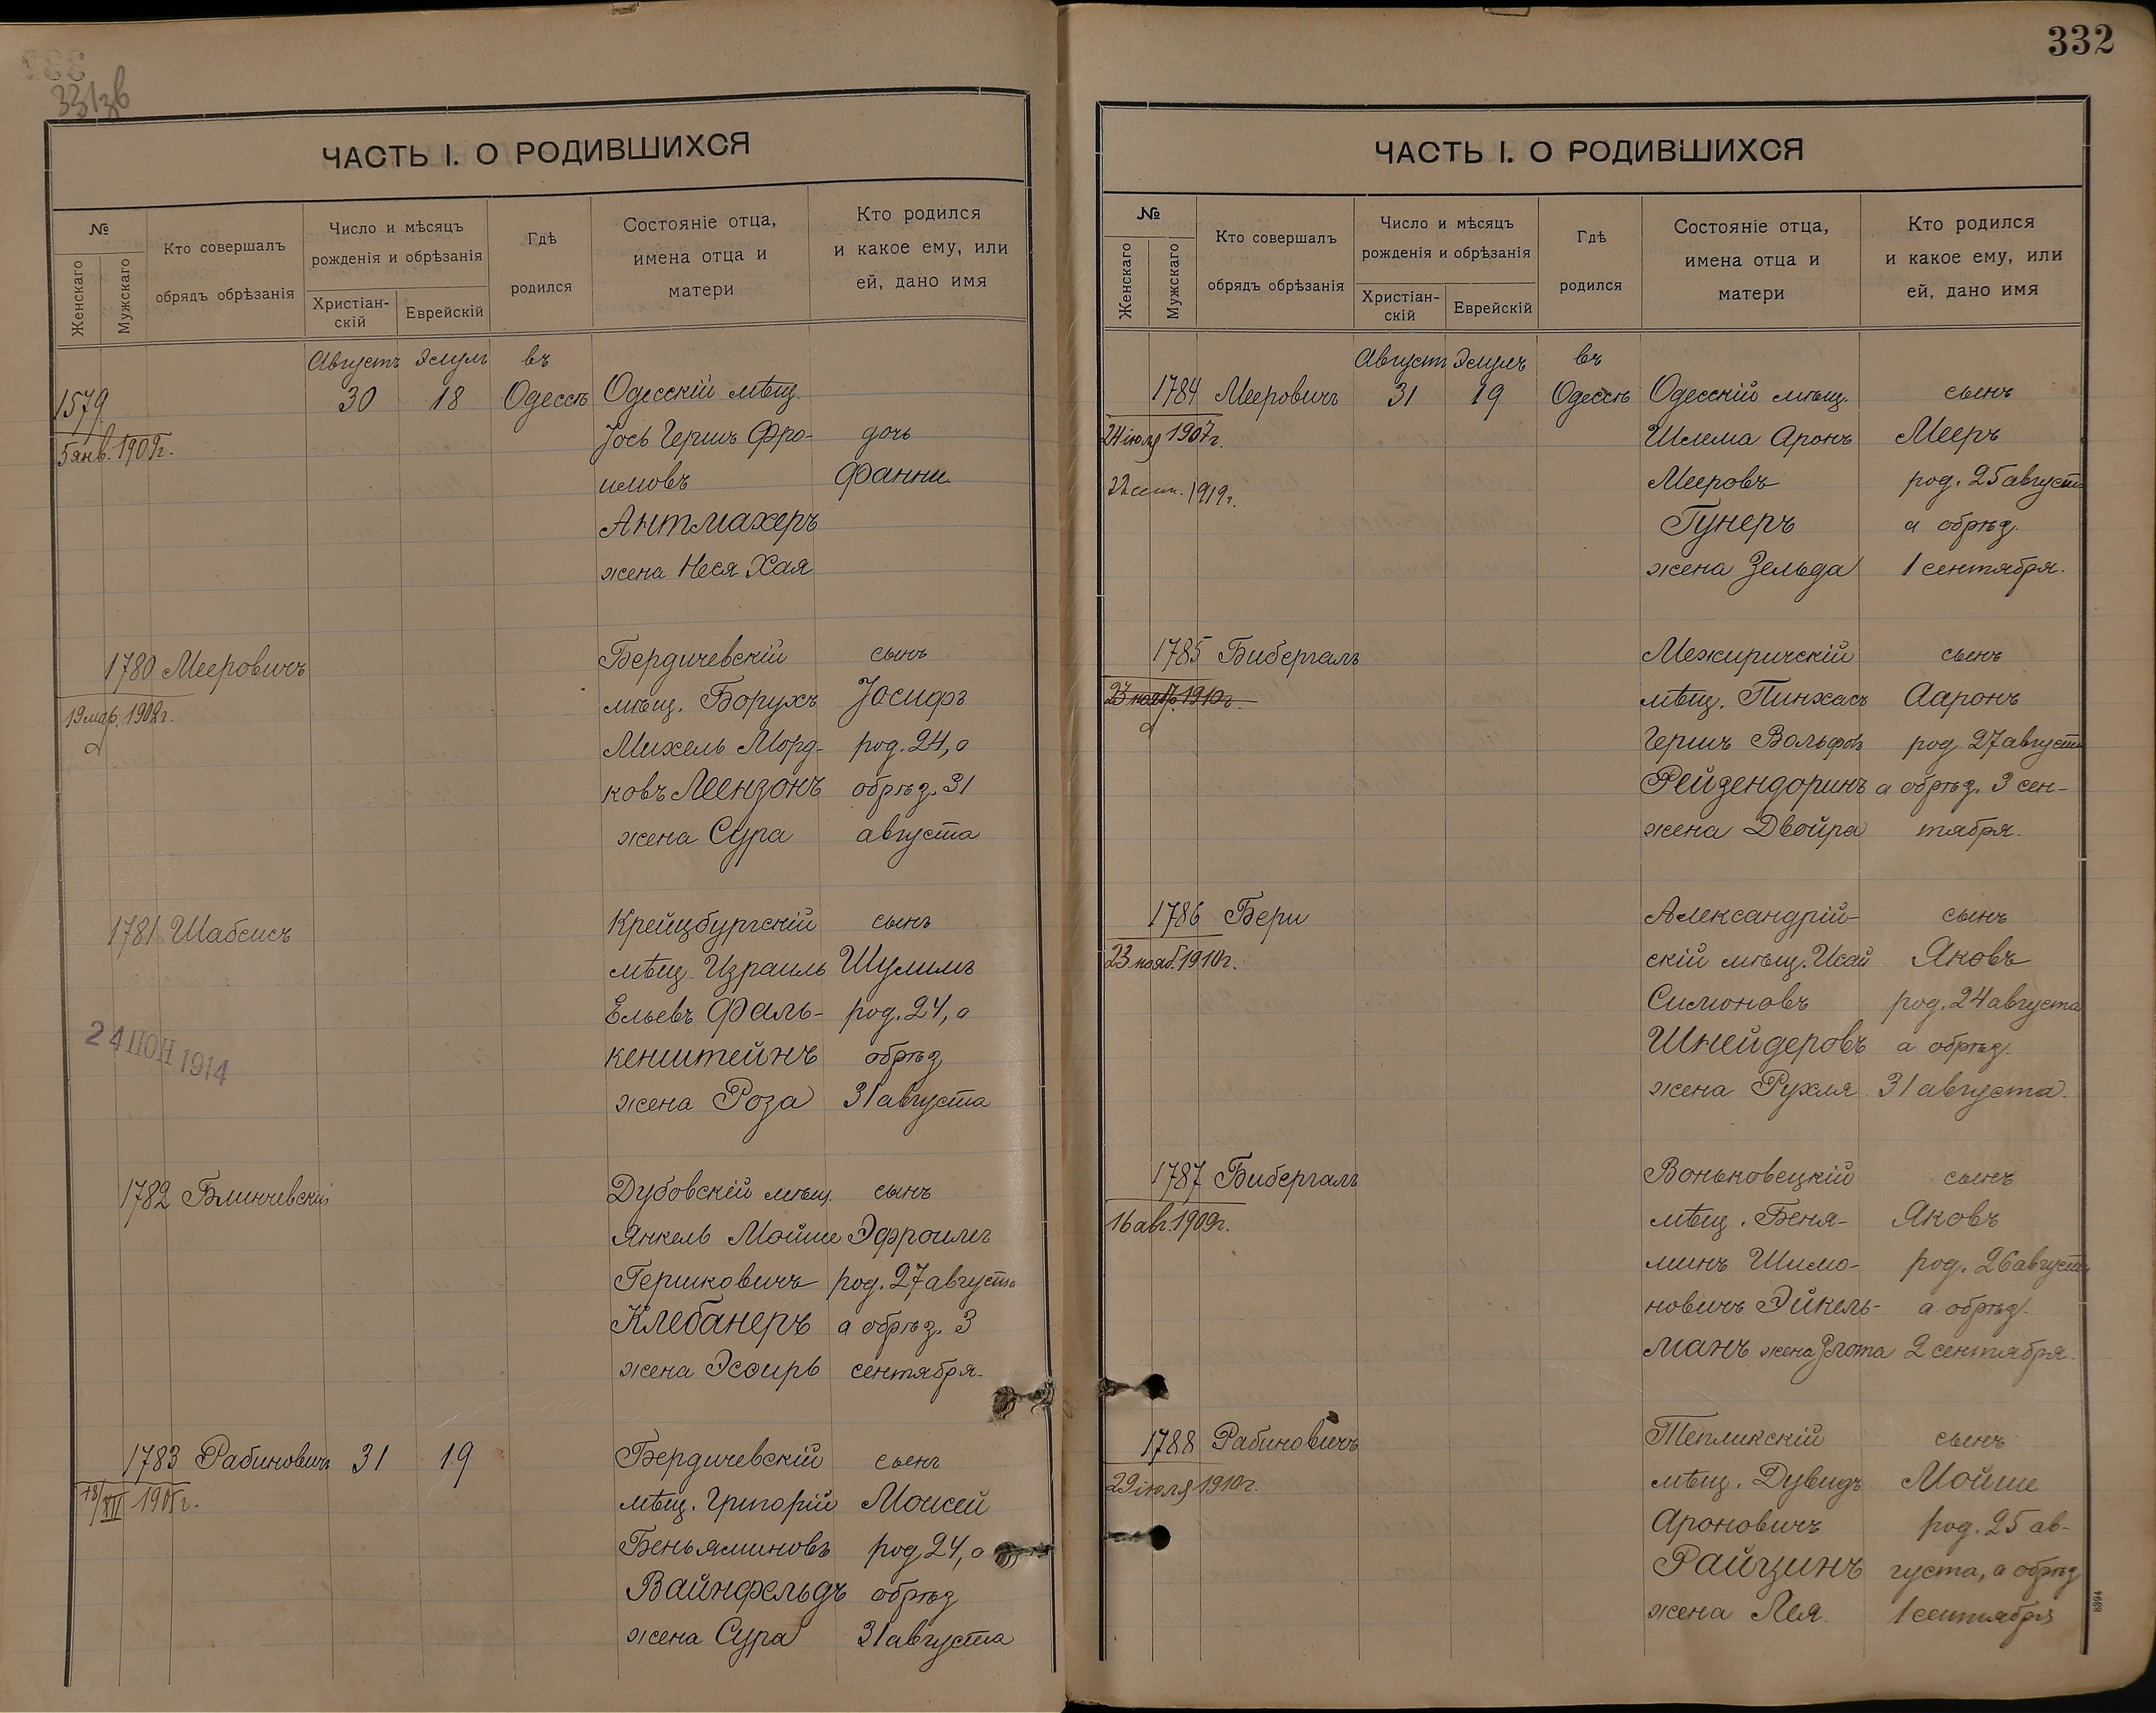 331зв
ЧАСТЬ I. О РОДИВШИХСЯ
№
Женскаго
Мужскаго
Кто совершалъ
обрядъ обрѣзанія
Число и мѣсяцъ
рожденія и обрѣзанія
Христіан-
скій
Еврейскій
Гдѣ
родился
Состояніе отца,
имена отца и
матери
Кто родился
и какое ему, или
ей, дано имя
Августъ Элулъ въ
1579 30 18 Одессѣ Одесскій мѣщ.
5 янв. 1909г. Іось Гершъ Фро- дочь
имовъ Фанни
Антмахеръ
жена Неся Хая
1780 Мееровичъ Бердичевскій сынъ
19 мар. 1902г. мѣщ. Борухъ Іосифъ
Михель Морд- род. 24, а
ковъ Леензонъ обрѣз. 31
жена Сура августа
1781 Шабсисъ Крейцбургскій сынъ
мѣщ. Израиль Шулимъ
Ельевъ Фаль- род. 24, а
кенштейнъ обрѣз
24 ІЮН 1914
жена Роза 31 августа
1782 Блинчевскій Дубовскій мѣщ. сынъ
Янкель Мойше Эфроимъ
Гершковичъ род. 27 августа
Клебанеръ а обрѣз. 3
жена Эсѳирь сентября.
1783 Рабиновичъ 31 19 Бердичевскій сынъ
18/XII 1905г. мѣщ. Григорій Моисей
Беньяминовъ род 24, а
Вайнфельдъ обрѣз
жена Сура 31 августа
332
ЧАСТЬ I. О РОДИВШИХСЯ
№
Женскаго
Мужскаго
Кто совершалъ
обрядъ обрѣзанія
Число и мѣсяцъ
рожденія и обрѣзанія
Христіан-
скій
Еврейскій
Гдѣ
родился
Состояніе отца,
имена отца и
матери
Кто родился
и какое ему, или
ей, дано имя
Августъ Элулъ въ
1784 Мееровичъ 31 19 Одессѣ Одесскій мѣщ. сынъ
24 іюля 1907г. Шлема Аронъ Мееръ
22 сент. 1919г. Мееровъ род. 25 августа
Гунеръ а обрѣз.
жена Зельда 1 сентября.
1785 Бибергалъ Межиричскій сынъ
23 нояб. 1910г. мѣщ. Пинхасъ Ааронъ
Гершъ Вольфов род. 27 августа
Рейзендоринъ а обрѣз. 3 сен-
жена Двойра тября.
1786 Бери Александрій- сынъ
23 нояб. 1910г. скій мѣщ. Исай Яковъ
Симоновъ род. 24 августа
Шнейдеровъ а обрѣз.
жена Рухля 31 августа.
1787 Бибергалъ Воньковецкій сынъ
16 авг. 1909г. мѣщ. Беня- Яковъ
минъ Шимо- род. 26 августа
новичъ Эйкель- а обрѣз.
манъ жена Злота 2 сентября.
1788 Рабиновичъ Тепликскій сынъ
29 іюля 1910г. мѣщ. Дувидъ Мойше
Ароновичъ род. 25 ав-
Райцинъ густа, а обрѣз
жена Лея. 1 сентября